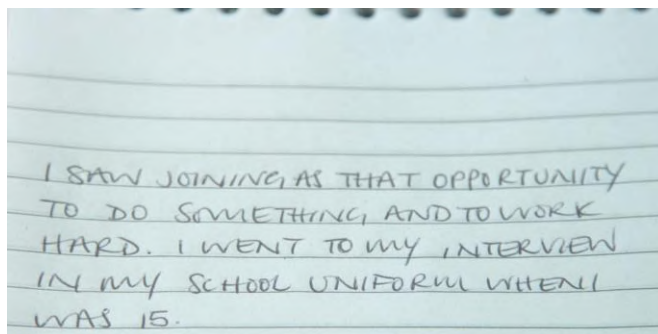 I SAW JOINING AS THAT OPPORTUNITY
TO DO SOMETHING AND TO WORK
HARD. I WENT TO MY INTERVIEW
IN MY SCHOOL UNIFORM WHEN I
WAS 15.